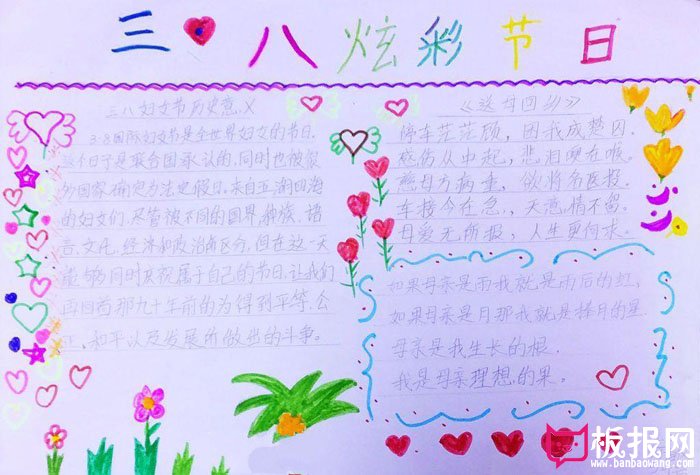 三八炫彩节日
三八妇女节历史意义
3·8国际妇女节是全世界妇女的节日.
这个日子是联合国承认的,同时也被很
多国家确定为法定假日.来自五湖四海
的妇女们,尽管被不同的国界、种族、语
言、文化、经济和政治所区分,但在这一天
能够同时庆祝属于自己的节日.让我们
再回首那九十年前的为得到平等、公
正、和平以及发展所做出的斗争。
《送母回乡》
停车茫茫顾,困我成楚囚.
感伤从中起,悲泪哽在喉.
慈母方病重,欲将名医投.
车接今在急,天意情不留.
母爱无所报,人生更何求.
如果母亲是雨我就是雨后的虹,
如果母亲是月那我就是捧月的星.
母亲是我生长的根.
我是母亲理想的果。
板报网
www.banbaowang.com